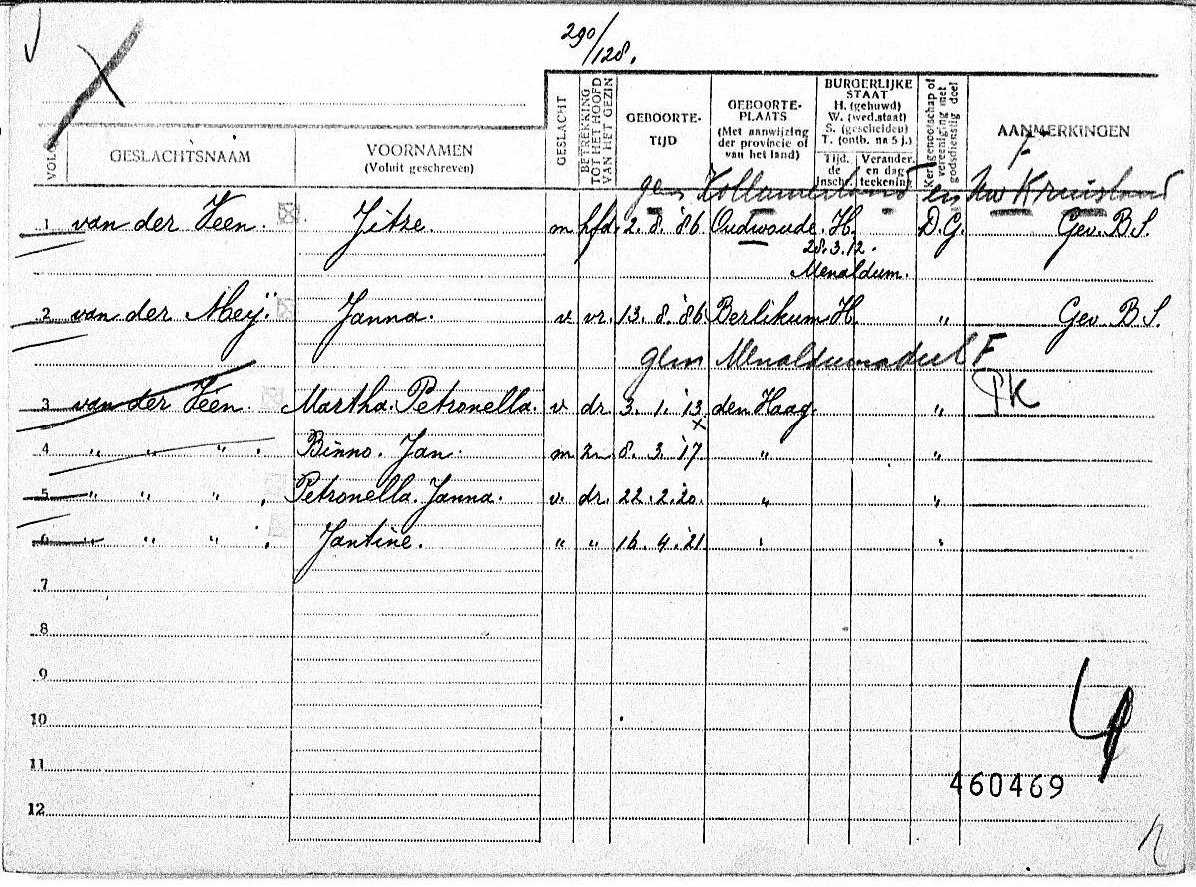 290/128.
VOLG
GESLACHTSNAAM
VOORNAMEN
(Voluit geschreven)
GESLACHT
BETREKKING TOT HET HOOFD VAN HET GEZIN
GEBOORTE-
TIJD
GEBOORTE-
PLAATS
(Met aanwijzing
der provincie of
van het land)
BURGERLIJKE
STAAT
H. (gehuwd)
W. (wed.staat)
S. (gescheiden)
T. (ontb. na 5 j.)
Tijd. de inschr.
Verander. en dag- teekening
Kerkgenootschap of vereeniging met godsdienstig doel
AANMERKINGEN
F
gem Kollumerland en Nw Kruisland
1 van der Veen. Jitze. m hfd. 2. 8. '86 Oudwoude. H. D.G. Gev. B.S.
28.3.12.
Menaldum.
2 van der Meij. Janna. v vr. 13. 8. '86 Berlikum H. " Gev B S.
gem Menaldumadeel F
PK
3 van der Veen Martha. Petronella. v dr. 3. 1. '13 den Haag. "
x
4 " " " . Binno. Jan. m zn 8. 3. '17. " "
5 " " " . Petronella. Janna. v. dr. 22. 2. '20. " "
6 " " " . Jantine. " " 16. 4. '21. " "
7
8
9
10
11
460469
12